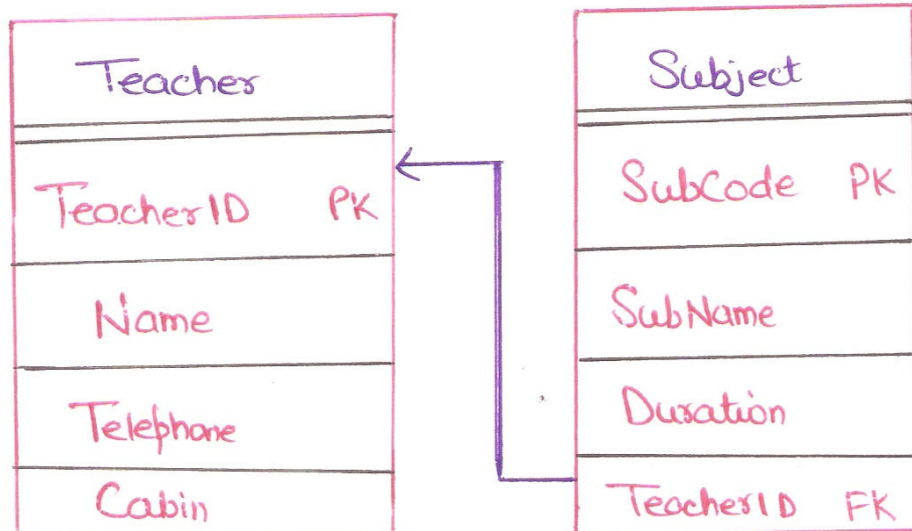 Teacher
TeacherID PK
Name
Telephone
Cabin
Subject
SubCode PK
SubName
Duration
TeacherID FK